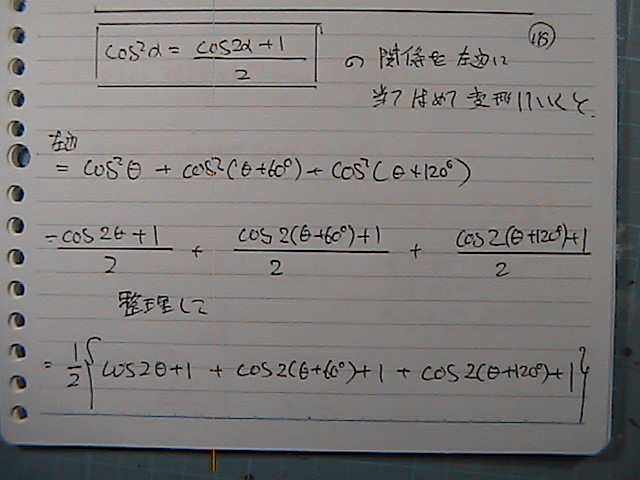 (15)
cos²α = (cos2α+1)/2 の関係を左辺に
当てはめて変形していくと.
左辺
= cos²θ + cos²(θ+60°) + cos²(θ+120°)
= (cos2θ+1)/2 + (cos2(θ+60°)+1)/2 + (cos2(θ+120°)+1)/2
整理して
= 1/2{cos2θ+1 + cos2(θ+60°)+1 + cos2(θ+120°)+1}